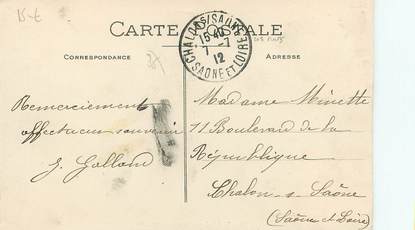 15 €
CARTE POSTALE
CHALON S/SAÔNE
15 40
7 - 7
12
SAONE ET LOIRE
CORRESPONDANCE
ADRESSE
Remerciements
affectueux souvenir
J. Galland
Madame Minette
11 Boulevard de la
République
Chalon-s-Saône
(Saône et Loire)